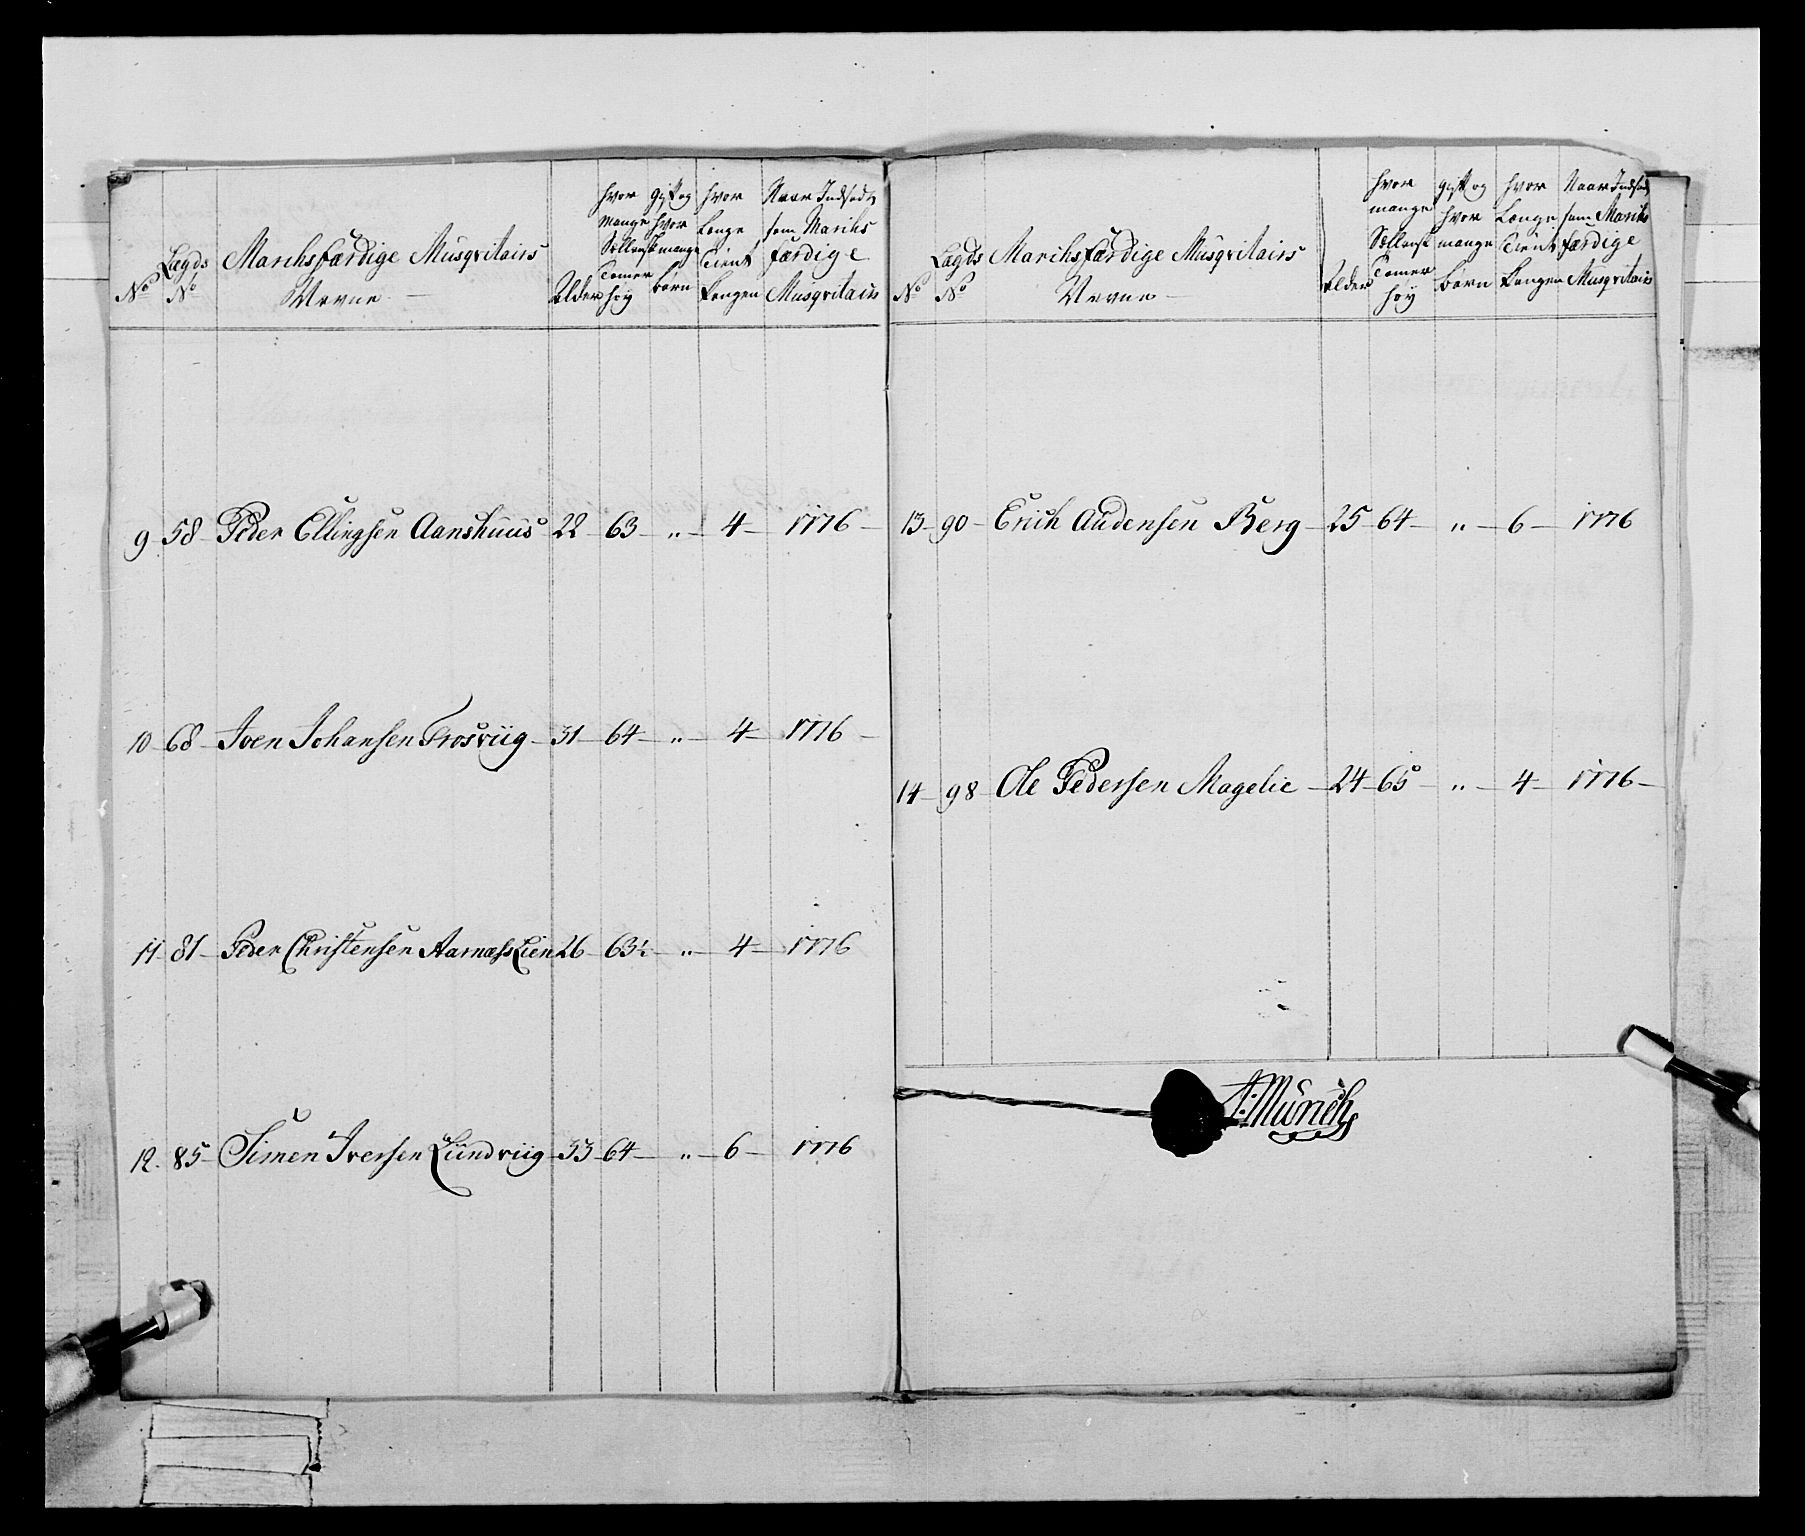 No | Lægds No | Marchsfærdige Musqvitairs Nevne | Alder | hvor Mange Sællansk Tomer høy | gift og hvor mange børn | hvor Længe Tient Kongen | Naar Indsadt som Marchs færdige Musqvitairs
9. 58 Peder Ellingsen Aanshuus 22 63 — „ — 4 — 1776 —
10 68 Iven Johansen Frosviig 31 64 — „ — 4 — 1776 —
11 81 Peder Christensen Aarnæss Lien 26 63½ „ — 4 — 1776
12. 85 Simen Iversen Lundviig 33 64 — „ — 6 — 1776
No | Lægds No | Marchsfærdige Musqvitairs Nevne | Alder | hvor mange Sællansk Tomer høy | gift og hvor mange børn | hvor Længe Tient Kongen | Naar Indsadt som Marchs færdige Musqvitairs
13 90 Erich Audensen Berg 25 64 — „ — 6 — 1776
14 98 Ole Pedersen Magelie 24 65 — „ — 4 — 1776 —
A: Münch